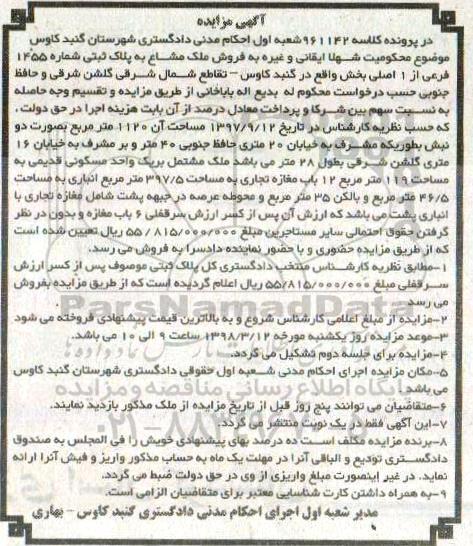 آگهی مزایده
در پرونده کلاسه ۹۶۱۱۴۲شعبه اول احکام مدنی دادگستری شهرستان گنبد کاوس
موضوع محکومیت شهلا ایقانی و غیره به فروش ملک مشاع به پلاک ثبتی شماره ۱۴۵۵
فرعی از ۱ اصلی بخش واقع در گنبد کاوس – تقاطع شمال شرقی گلشن شرقی و حافظ
جنوبی حسب درخواست محکوم له بدیع اله باباخانی از طریق مزایده و تقسیم وجه حاصله
به نسبت سهم بین شرکا و پرداخت معادل درصد از آن بابت هزینه اجرا در حق دولت .
که حسب نظریه کارشناس در تاریخ ۱۳۹۷/۹/۱۲ مساحت آن ۱۱۲۰ متر مربع بصورت دو
نبش بطوریکه مشرف به خیابان ۲۰ متری حافظ جنوبی ۴۰ متر و بر مشرف به خیابان ۱۶
متری گلشن شرقی بطول ۲۸ متر می باشد ملک مشتمل بریک واحد مسکونی قدیمی به
مساحت ۱۱۹ متر مربع ۱۲ باب مغازه تجاری به مساحت ۳۹۷/۵ متر مربع انباری به مساحت
۴۶/۵ متر مربع و بالکن ۳۵ متر مربع و محوطه عرصه در جبهه پشت شامل مغازه تجاری با
انباری پشت می باشد که ارزش آن پس از کسر ارزش سرقفلی ۶ باب مغازه و بدون در نظر
گرفتن حقوق احتمالی سایر مستاجرین مبلغ ۵۵/۸۱۵/۰۰۰/۰۰۰ ریال تعیین شده است
که از طریق مزایده حضوری و با حضور نماینده دادسرا به فروش می رسد.
۱-مطابق نظریه کارشناس منتخب دادگستری کل پلاک ثبتی موصوف پس از کسر ارزش
سرقفلی مبلغ ۵۵/۸۱۵/۰۰۰/۰۰۰ ریال اعلام گردیده است که از طریق مزایده بفروش
می رسد
۲-مزایده از مبلغ اعلامی کارشناس شروع و به بالاترین قیمت پیشنهادی فروخته می شود
۳-موعد مزایده روز یکشنبه مورخه ۱۳۹۸/۳/۱۲ ساعت ۹ الی ۱۰ می باشد.
۴-مزایده برای جلسه دوم تشکیل می گردد.
۵-مکان مزایده اجرای احکام مدنی شعبه اول حقوقی دادگستری شهرستان گنبد کاوس
می باشد
۶-متقاضیان می توانند پنج روز قبل از تاریخ مزایده از ملک مذکور بازدید نمایند.
۷-این آگهی فقط در یک نوبت منتشر می گردد.
۸-برنده مزایده مکلف است ده درصد بهای پیشنهادی خویش را فی المجلس به صندوق
دادگستری تودیع و الباقی آنرا در مهلت یک ماه به حساب مذکور واریز و فیش آنرا ارائه
نماید. در غیر اینصورت مبلغ واریزی از وی در حق دولت ضبط می گردد.
۹-به همراه داشتن کارت شناسایی معتبر برای متقاضیان الزامی است.
مدیر شعبه اول اجرای احکام مدنی دادگستری گنبد کاوس – بهاری
ParsNamadData
پایگاه اطلاع رسانی مناقصه و مزایده